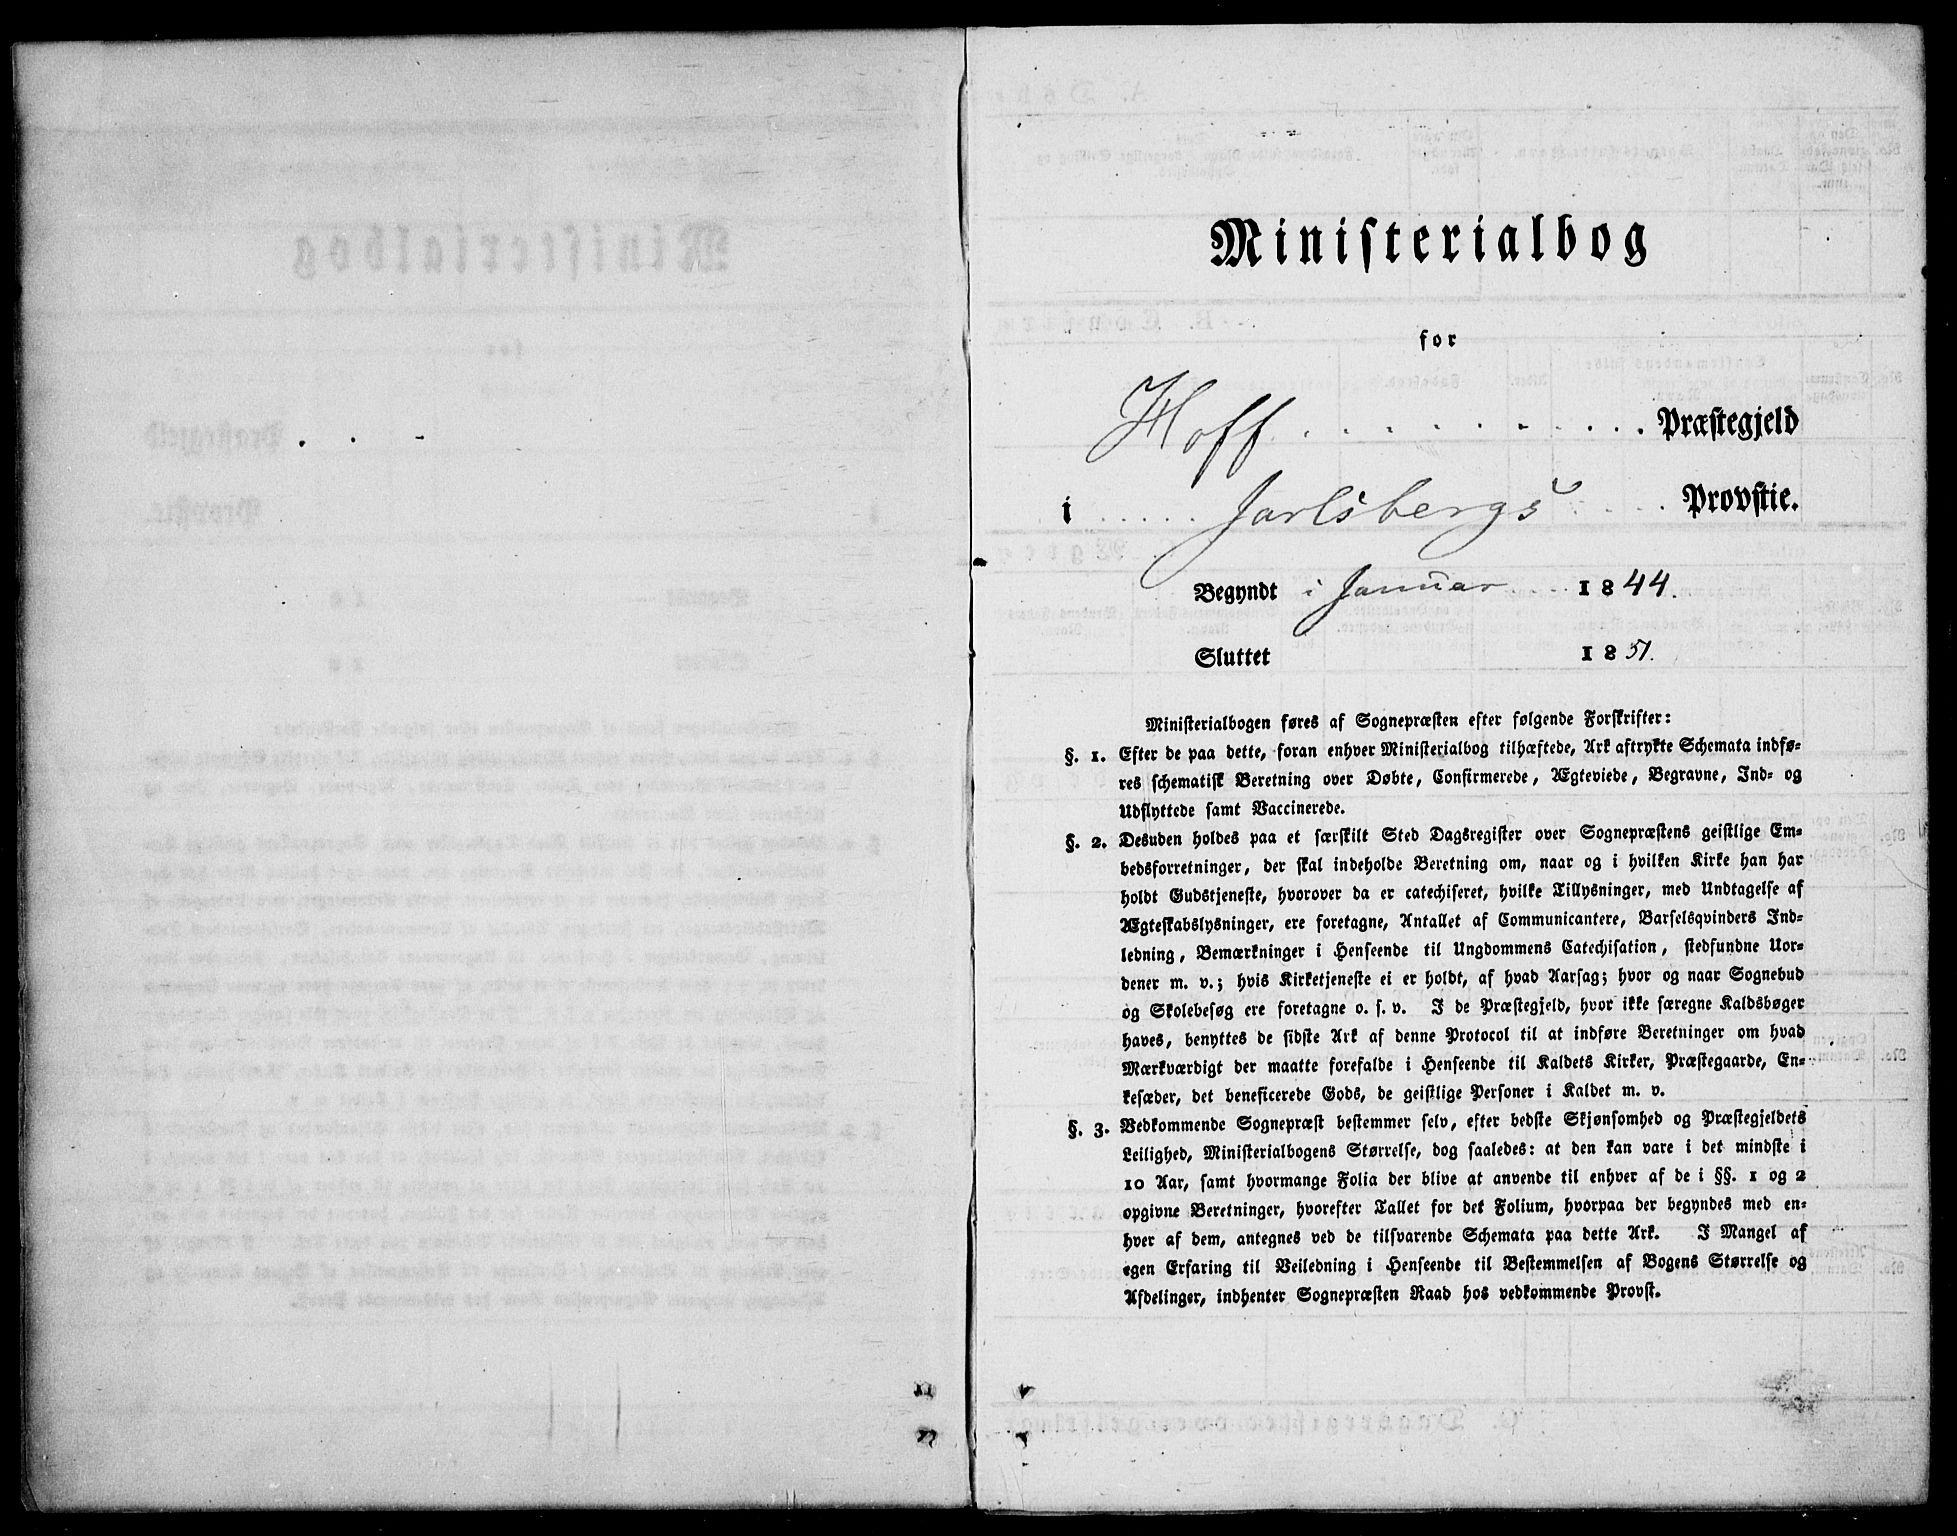 Ministerialbog
for
Hoff . . . . . . . . . . . Præstegjeld
i . . . . . Jarlsbergs . . . . Provstie.
Begyndt i Januar 1844.
Sluttet 1851.
Ministerialbogen føres af Sognepræsten efter følgende Forskrifter:
§. 1. Efter de paa dette, foran enhver Ministerialbog tilhæftede, Ark aftrykte Schemata indfø-
res schematisk Beretning over Døbte, Confirmerede, Ægteviede, Begravne, Ind- og
Udflyttede samt Vaccinerede.
§. 2. Desuden holdes paa et særskilt Sted Dagsregister over Sognepræstens geistlige Em-
bedsforretninger, der skal indeholde Beretning om, naar og i hvilken Kirke han har
holdt Gudstjeneste, hvorover da er catechiseret, hvilke Tillysninger, med Undtagelse af
Ægteskabslysninger, ere foretagne, Antallet af Communicantere, Barselsqvinders Ind-
ledning, Bemærkninger i Henseende til Ungdommens Catechisation, stedfundne Uor-
dener m. v.; hvis Kirketjeneste ei er holdt, af hvad Aarsag; hvor og naar Sognebud
og Skolebesøg ere foretagne o. s. v. I de Præstegjeld, hvor ikke særegne Kaldsbøger
haves, benyttes de sidste Ark af denne Protocol til at indføre Beretninger om hvad
Mærkværdigt der maatte forefalde i Henseende til Kaldets Kirker, Præstegaarde, En-
kesæder, det beneficerede Gods, de geistlige Personer i Kaldet m. v.
§. 3. Vedkommende Sognepræst bestemmer selv, efter bedste Skjønsomhed og Præstegjeldets
Leilighed, Ministerialbogens Størrelse, dog saaledes: at den kan vare i det mindste i
10 Aar, samt hvormange Folia der blive at anvende til enhver af de i §§. 1 og 2
opgivne Beretninger, hvorefter Tallet for det Folium, hvorpaa der begyndes med en-
hver af dem, antegnes ved de tilsvarende Schemata paa dette Ark. I Mangel af
egen Erfaring til Veiledning i Henseende til Bestemmelsen af Bogens Størrelse og
Afdelinger, indhenter Sognepræsten Raad hos vedkommende Provst.